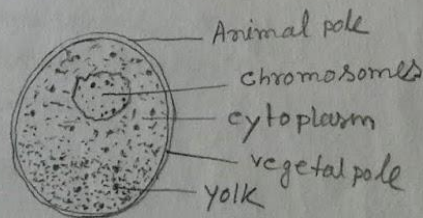 Animal pole
chromosomes
cytoplasm
vegetal pole
yolk